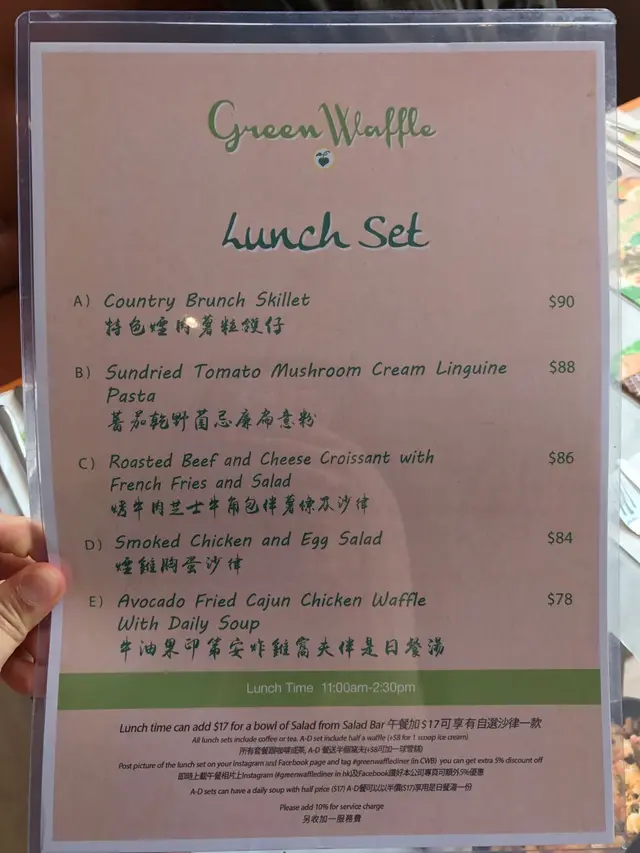 Green Waffle
Lunch Set
A) Country Brunch Skillet $90
特色煙肉薯粒鑊仔
B) Sundried Tomato Mushroom Cream Linguine $88
Pasta
蕃茄乾野菌忌廉扁意粉
C) Roasted Beef and Cheese Croissant with $86
French Fries and Salad
烤牛肉芝士牛角包伴薯條及沙律
D) Smoked Chicken and Egg Salad $84
煙雞胸蛋沙律
E) Avocado Fried Cajun Chicken Waffle $78
With Daily Soup
牛油果印第安炸雞窩夫伴是日餐湯
Lunch Time 11:00am-2:30pm
Lunch time can add $17 for a bowl of Salad from Salad Bar 午餐加$17可享有自選沙律一款
All lunch sets include coffee or tea. A-D set include half a waffle (+$8 for 1 scoop ice cream)
所有套餐跟咖啡或茶, A-D 餐送半個窩夫(+$8可加一球雪糕)
Post picture of the lunch set on your Instagram and Facebook page and tag #greenwafflediner (in CWB) you can get extra 5% discount off
即時上載午餐相片上Instagram (#greenwafflediner in hk)及Facebook讚好本公司專頁可額外5%優惠
A-D sets can have a daily soup with half price ($17) A-D餐可以以半價($17)享用是日餐湯一份
Please add 10% for service charge
另收加一服務費